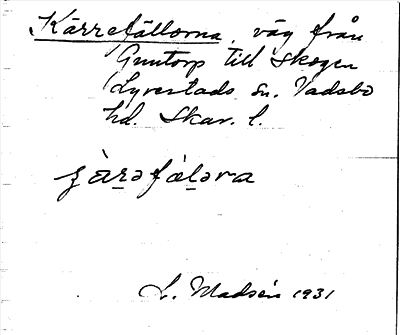 Kärrefällorna, väg från
Guntorp till skogen
Lyrestads sn. Vadsbo
hd. Skar. l.
ʒärəfäləra
L. Madsén 1931